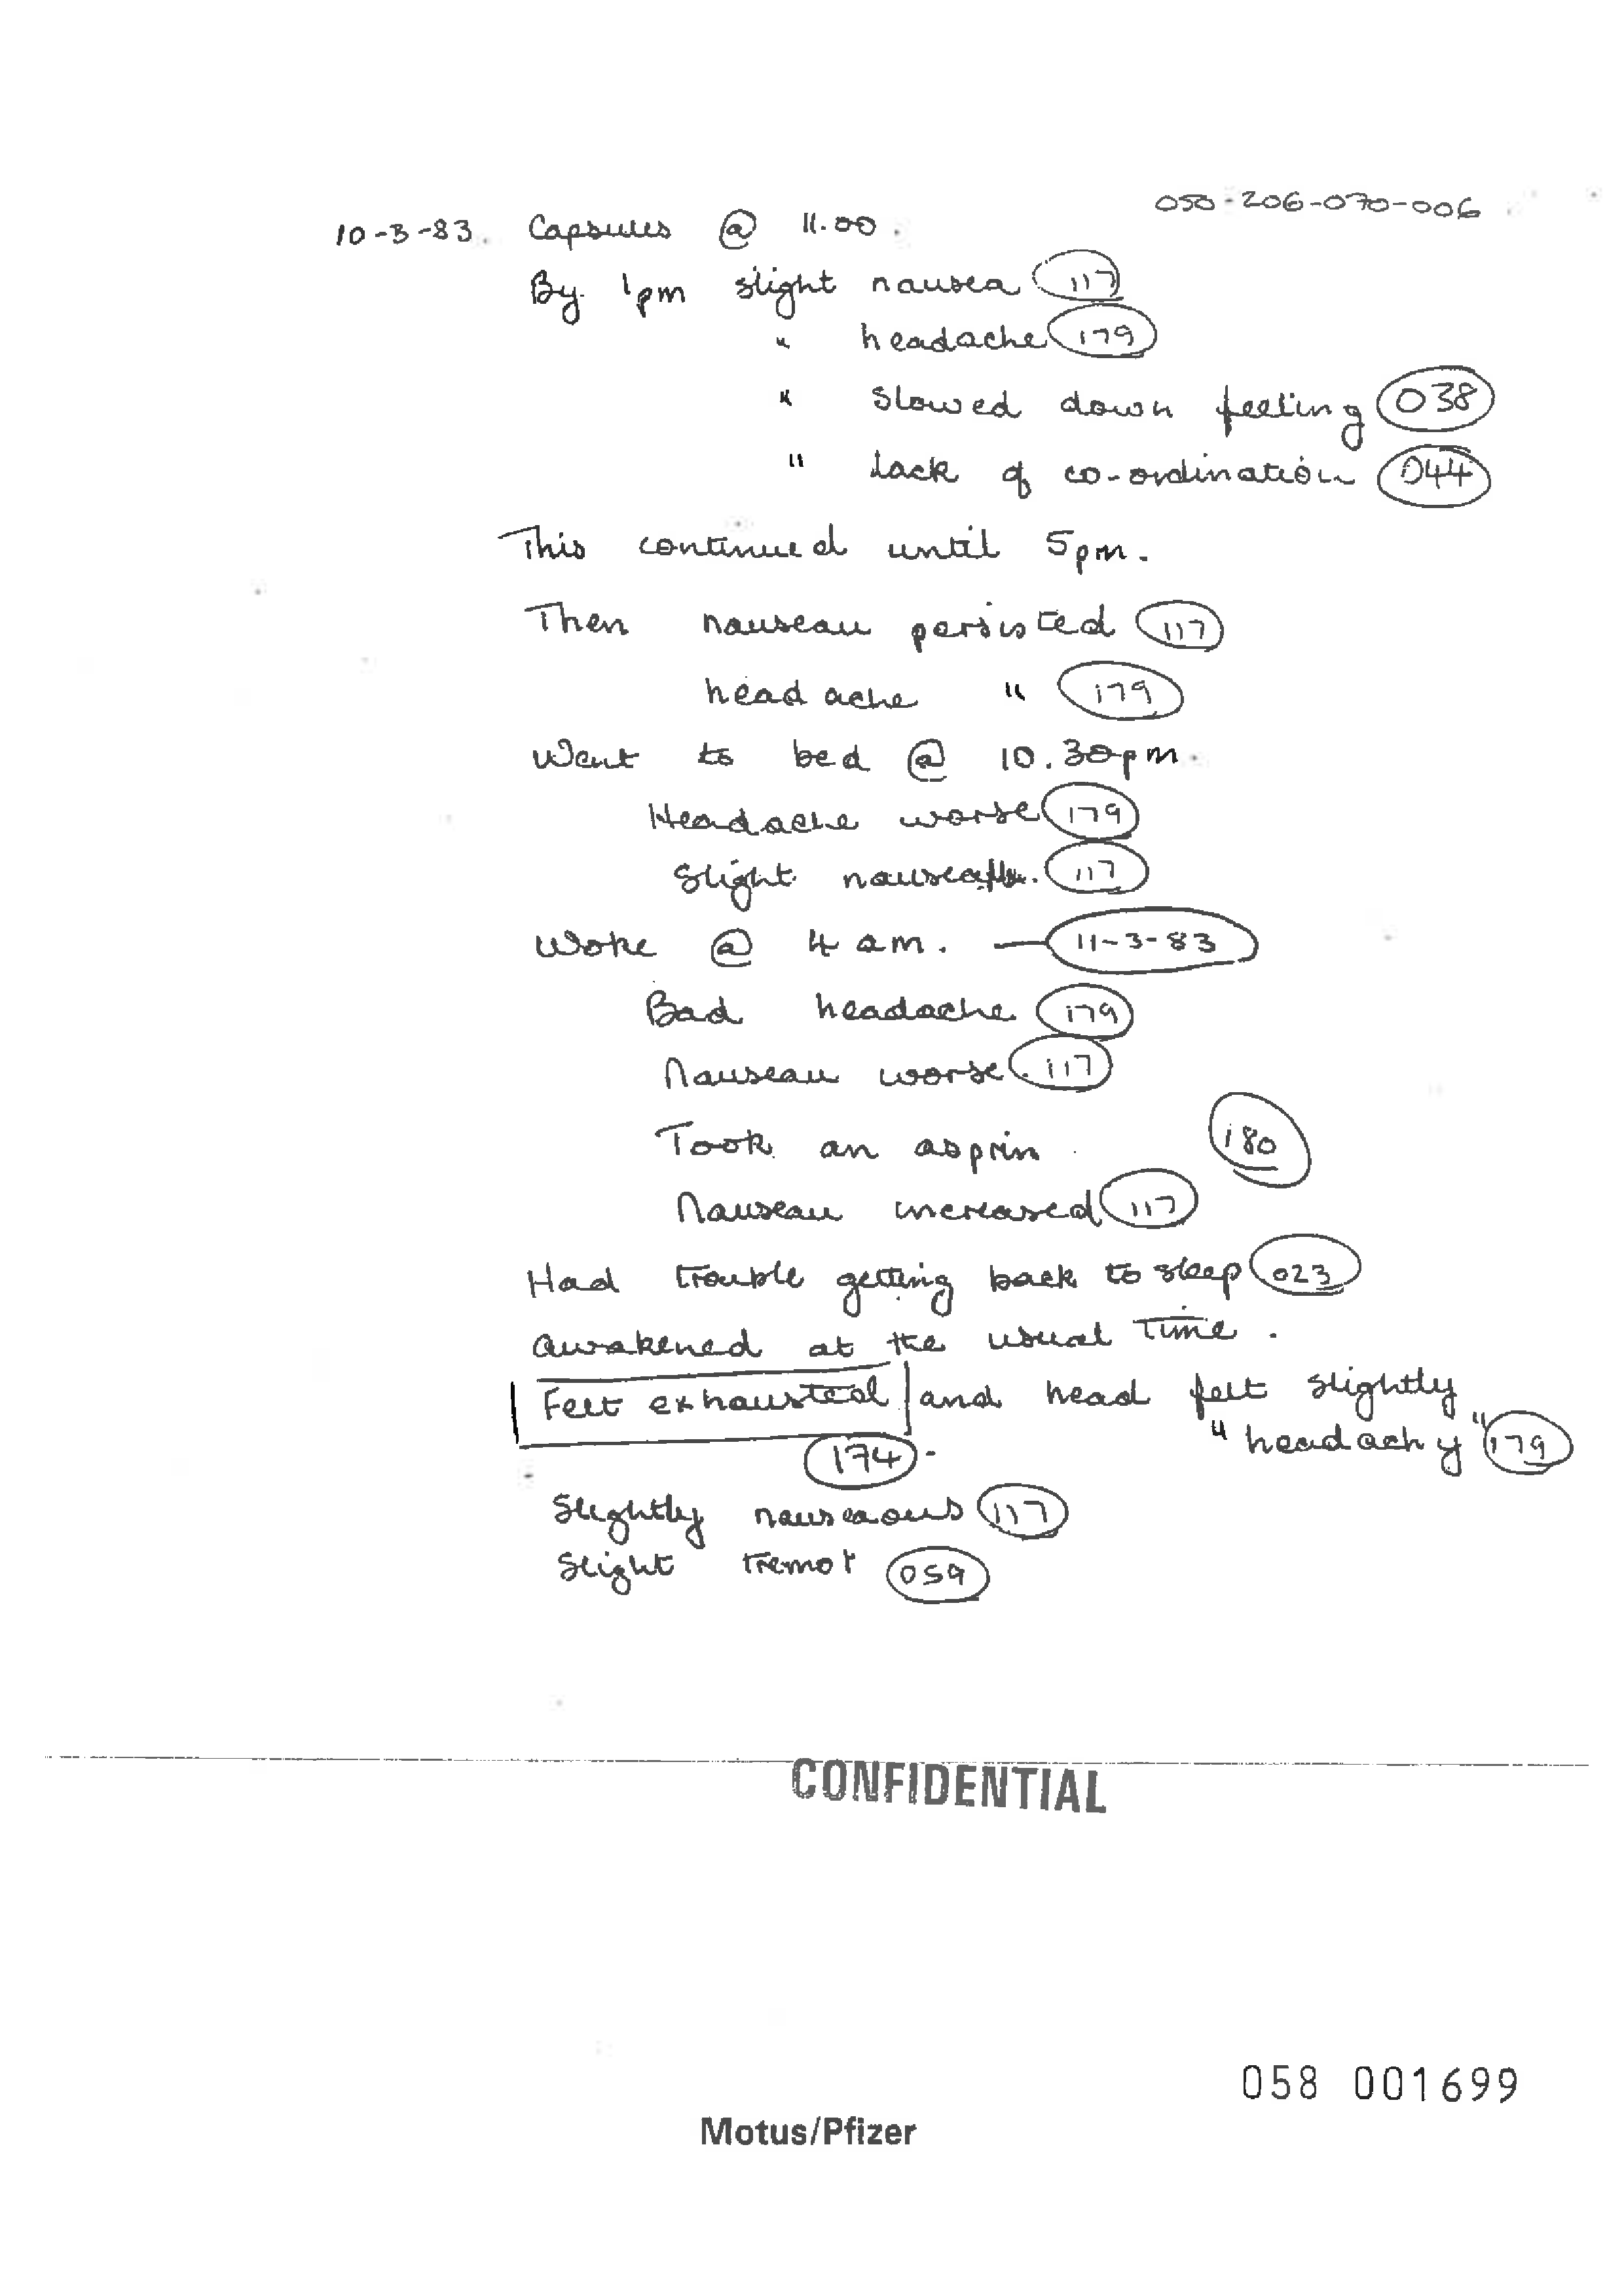 050-206-070-006
10-3-83. Capsules @ 11.00.
By 1pm slight nausea 117
" headache 179
" Slowed down feeling 038
" Lack of co-ordination 044
This continued until 5pm.
Then nauseau persisted 117
headache " 179
Went to bed @ 10.30pm.
Headache worse 179
Slight 117
Woke @ 4 am. — 11-3-83
Bad headache 179
Nauseau worse. 117
Took an asprin 180
Nauseau increased 117
Had trouble getting back to sleep 023
Awakened at the usual time.
Felt exhausted and head felt slightly
"headachy" 179
174.
Slightly nauseaous 117
Slight tremor 059
CONFIDENTIAL
058 001699
Motus/Pfizer